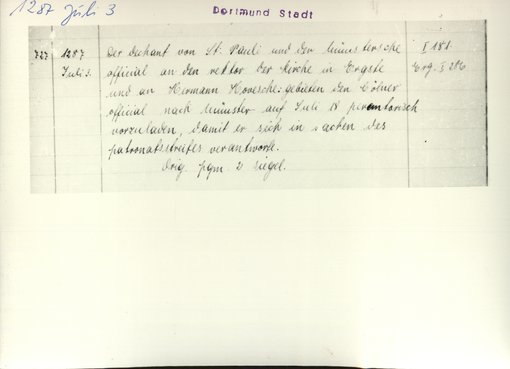 1287 Juli 3
Dortmund Stadt
727 1287 Juli 3. Der Dechant von St. Pauli und der Münstersche I 181.
official an den rektor der Kirche in Ergste Erg. I 286
und an Hermann Hovesche: gebieten den Cölner
official nach Münster auf Juli 18 peremtorisch
vorzuladen, damit er sich in sachen des
patronatsstreites verantworte.
Orig. pgm. 2 siegel.